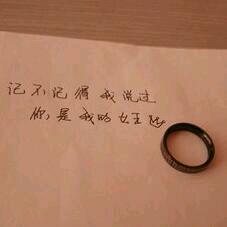 记不记得我说过
你是我的女王